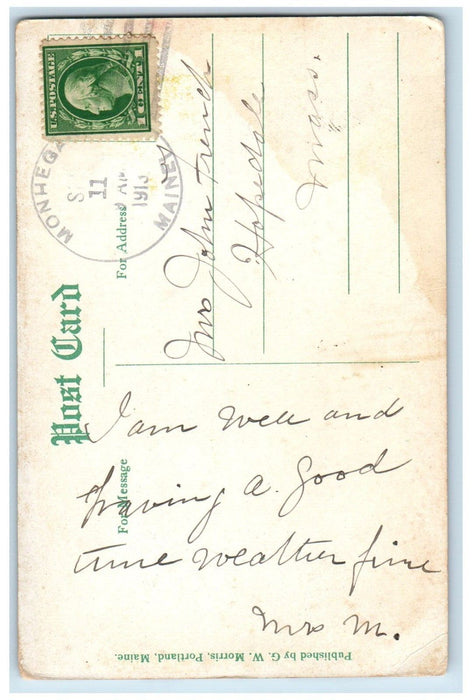 U.S. POSTAGE
1 CENT 1
MONHEGA
S
11
AM
1913
MAINE
Post Card
For Address
Mrs John French
Hopedale
Mass.
For Message
I am well and
having a good
time weather fine
Mrs M.
Published by G. W. Morris, Portland, Maine.